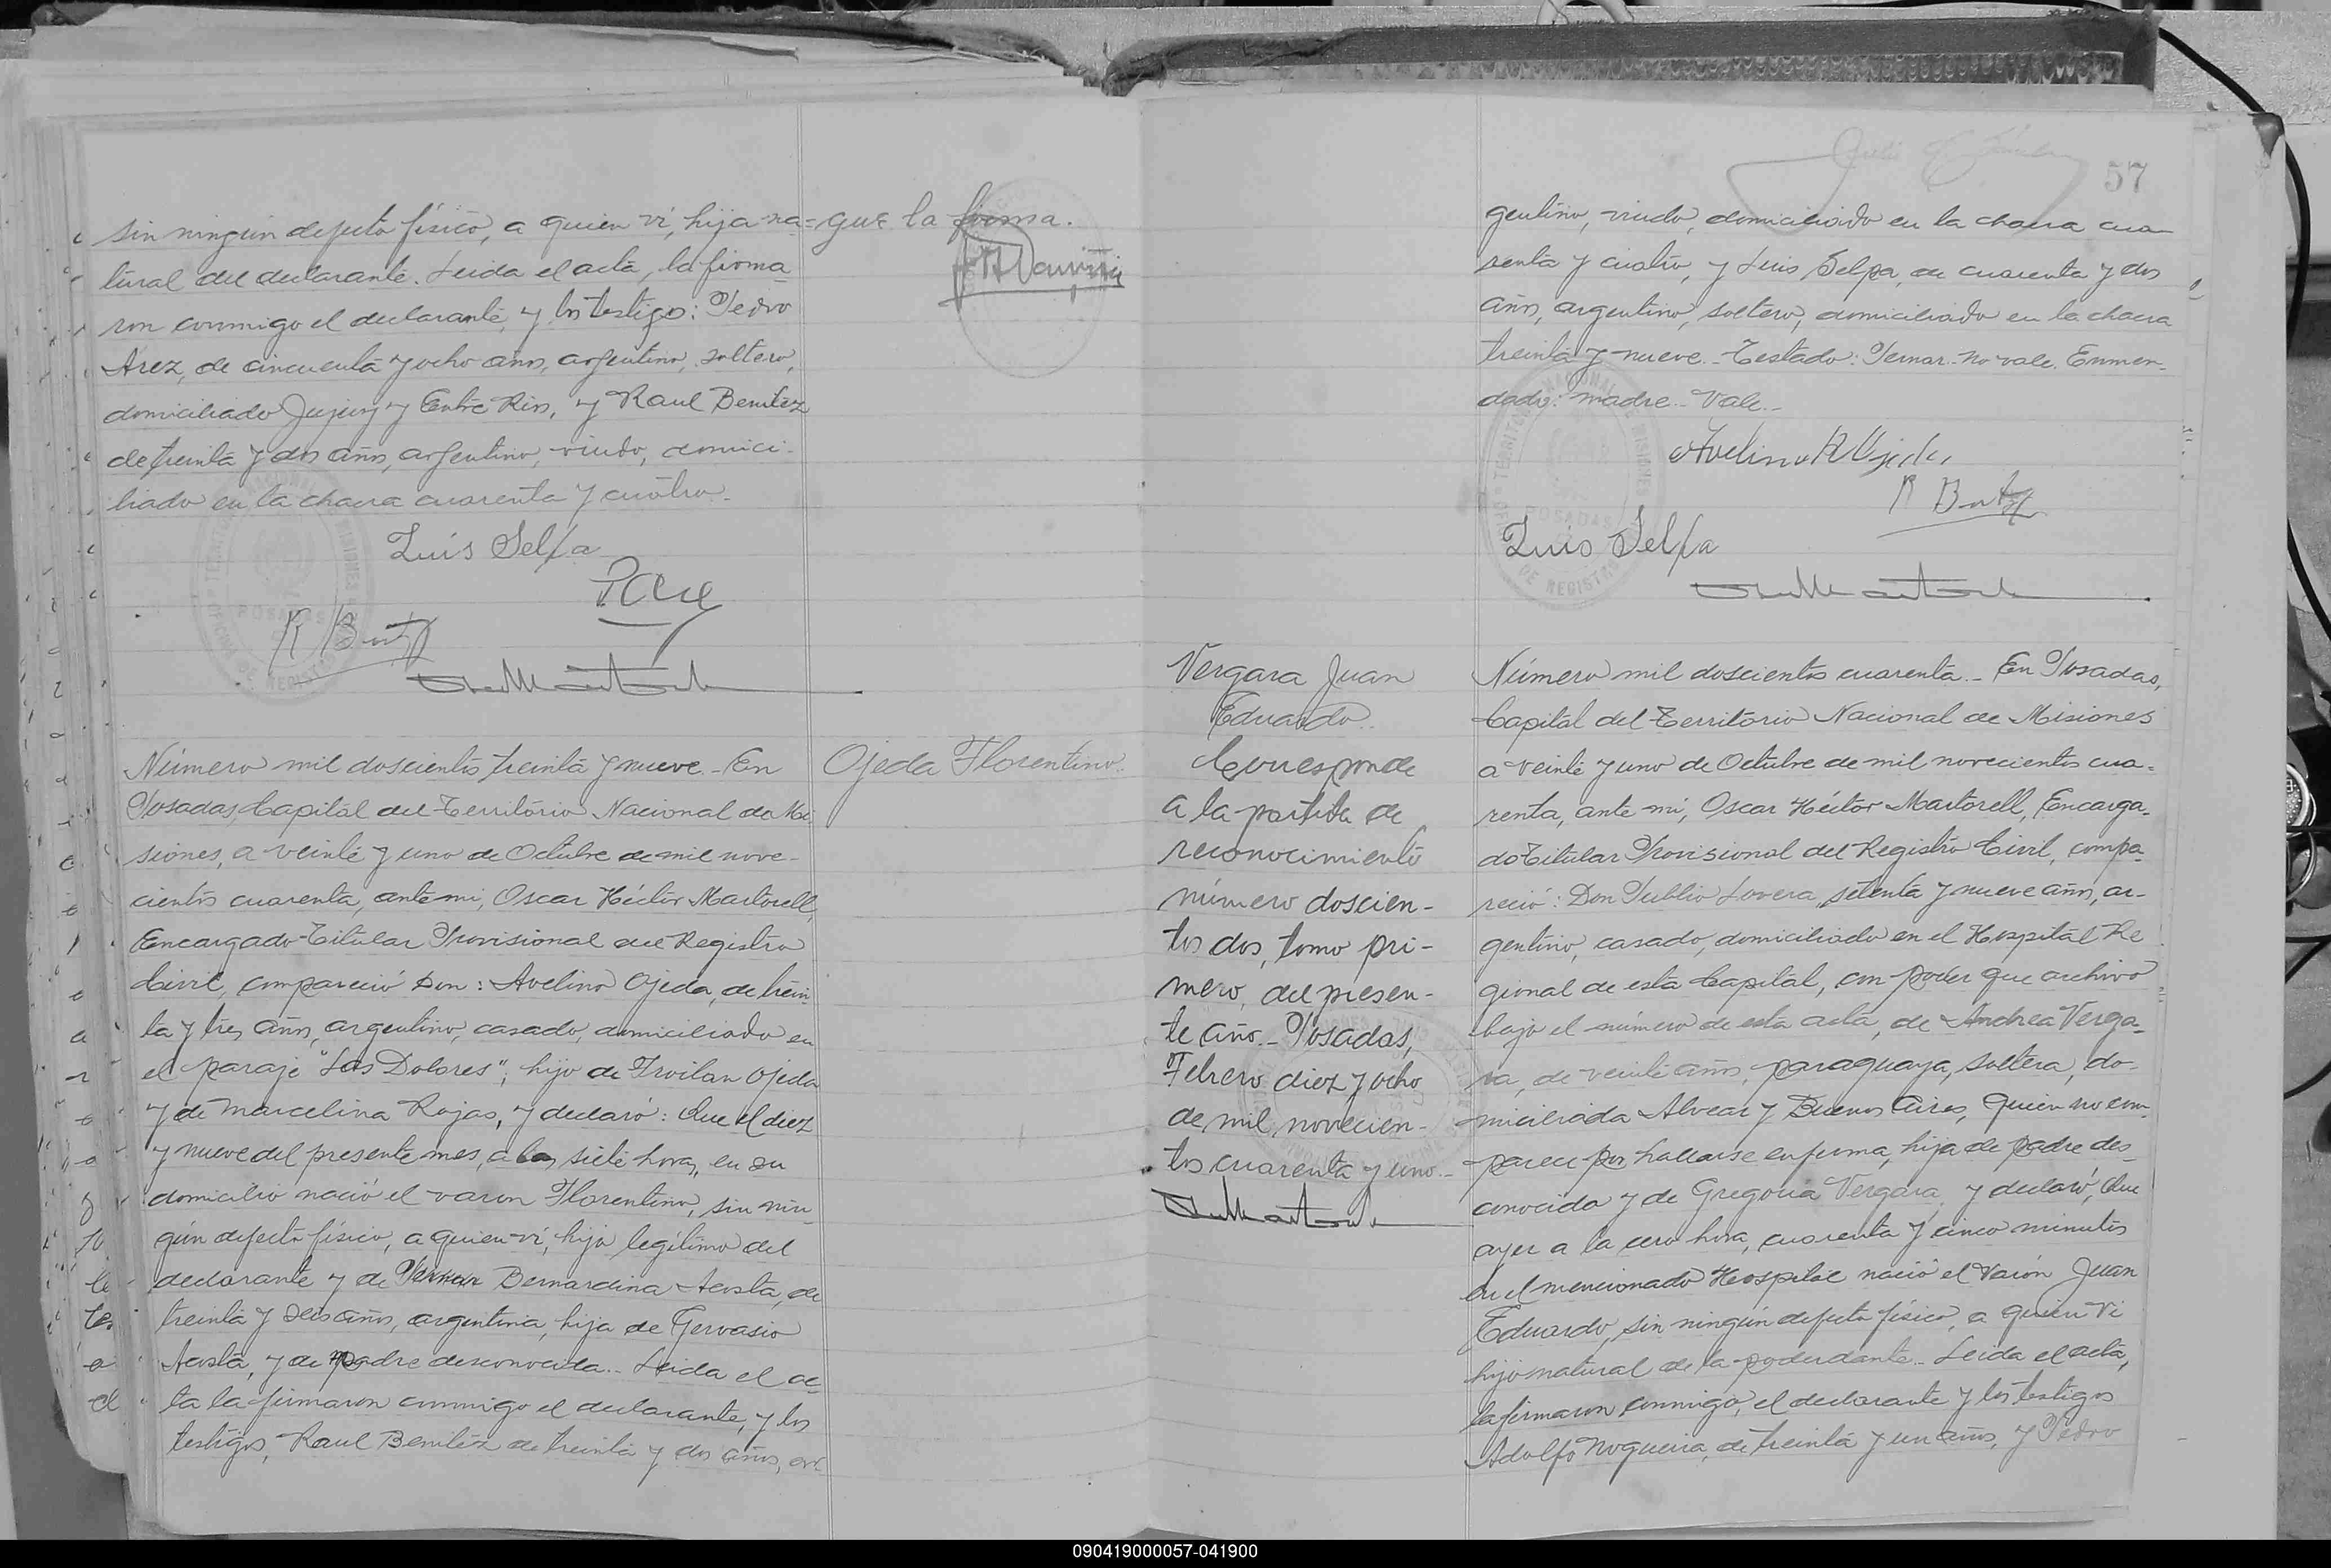 sin ningún defecto físico, a quien ví, hija na-
tural del declarante. Leida el acta, la firma-
ron conmigo el declarante, y los testigos: Pedro
Arez, de cincuenta y ocho años, argentino, soltero,
domiciliado Jujuy y Entre Rios, y Raul Benitez
de treinta y dos años, argentino, viudo, domici-
liado en la chacra cuarenta y cuatro.
Luis Selpa
que la firma.
Número mil doscientos treinta y nueve - En
Posadas, Capital del Territorio Nacional de Mi
siones, a veinte y uno de Octubre de mil nove-
cientos cuarenta, ante mi, Oscar Héctor Martorell,
Encargado Titular Provisional del Registro
Civil, compareció Don: Avelino Ojeda, de trein
ta y tres años, argentino, casado, domiciliado en
el paraje "Las Dolores"; hijo de Froilan Ojeda
y de Marcelina Rojas, y declaró: Que el diez
y nueve del presente mes, a las siete horas, en su
domicilio nació el varon Florentino, sin nin-
gún defecto físico, a quien ví, hijo legítimo del
declarante y de Bernardina Acosta, de
treinta y seis años, argentina, hija de Gervasio
Acosta, y de madre desconocida. Leida el ac-
ta la firmaron conmigo el declarante, y los
testigos, Raul Benitez de treinta y dos años, ar-
Ojeda Florentino.
57
gentino, viudo, domiciliado en la chacra cua-
renta y cuatro, y Luis Selpa, de cuarenta y dos
años, argentino, soltero, domiciliado en la chacra
treinta y nueve. Testado: Pernar. no vale. Enmen-
dado: madre. Vale.
Avelino R Ojeda
Luis Selpa
Vergara Juan
Eduardo.
Corresponde
a la partida de
reconocimiento
número doscien-
tos dos, tomo pri-
mero, del presen-
te año. Posadas,
Febrero diez y ocho
de mil novecien-
tos cuarenta y uno.
Número mil doscientos cuarenta - En Posadas,
Capital del Territorio Nacional de Misiones
a veinte y uno de Octubre de mil novecientos cua-
renta, ante mi, Oscar Héctor Martorell, Encarga-
do Titular Provisional del Registro Civil, compa-
reció: Don Publio Lovera, setenta y nueve años, ar-
gentino, casado, domiciliado en el Hospital Re
gional de esta Capital, con poder que archivo
bajo el número de esta acta, de Andrea Verga-
ra, de veinte años, paraguaya, soltera, do-
miciliada Alvear y Buenos Aires, quien no com-
parece por hallarse enferma, hija de padre des-
conocido y de Gregoria Vergara, y declaró, Que
ayer a la cero hora, cuarenta y cinco minutos
en el mencionado Hospital nació el varón Juan
Eduardo, sin ningún defecto físico, a quien vi
hijo natural de la poderdante. Leida el acta,
la firmaron conmigo, el declarante y los testigos
Adolfo Nogueira, de treinta y un años, y Pedro
090419000057-041900